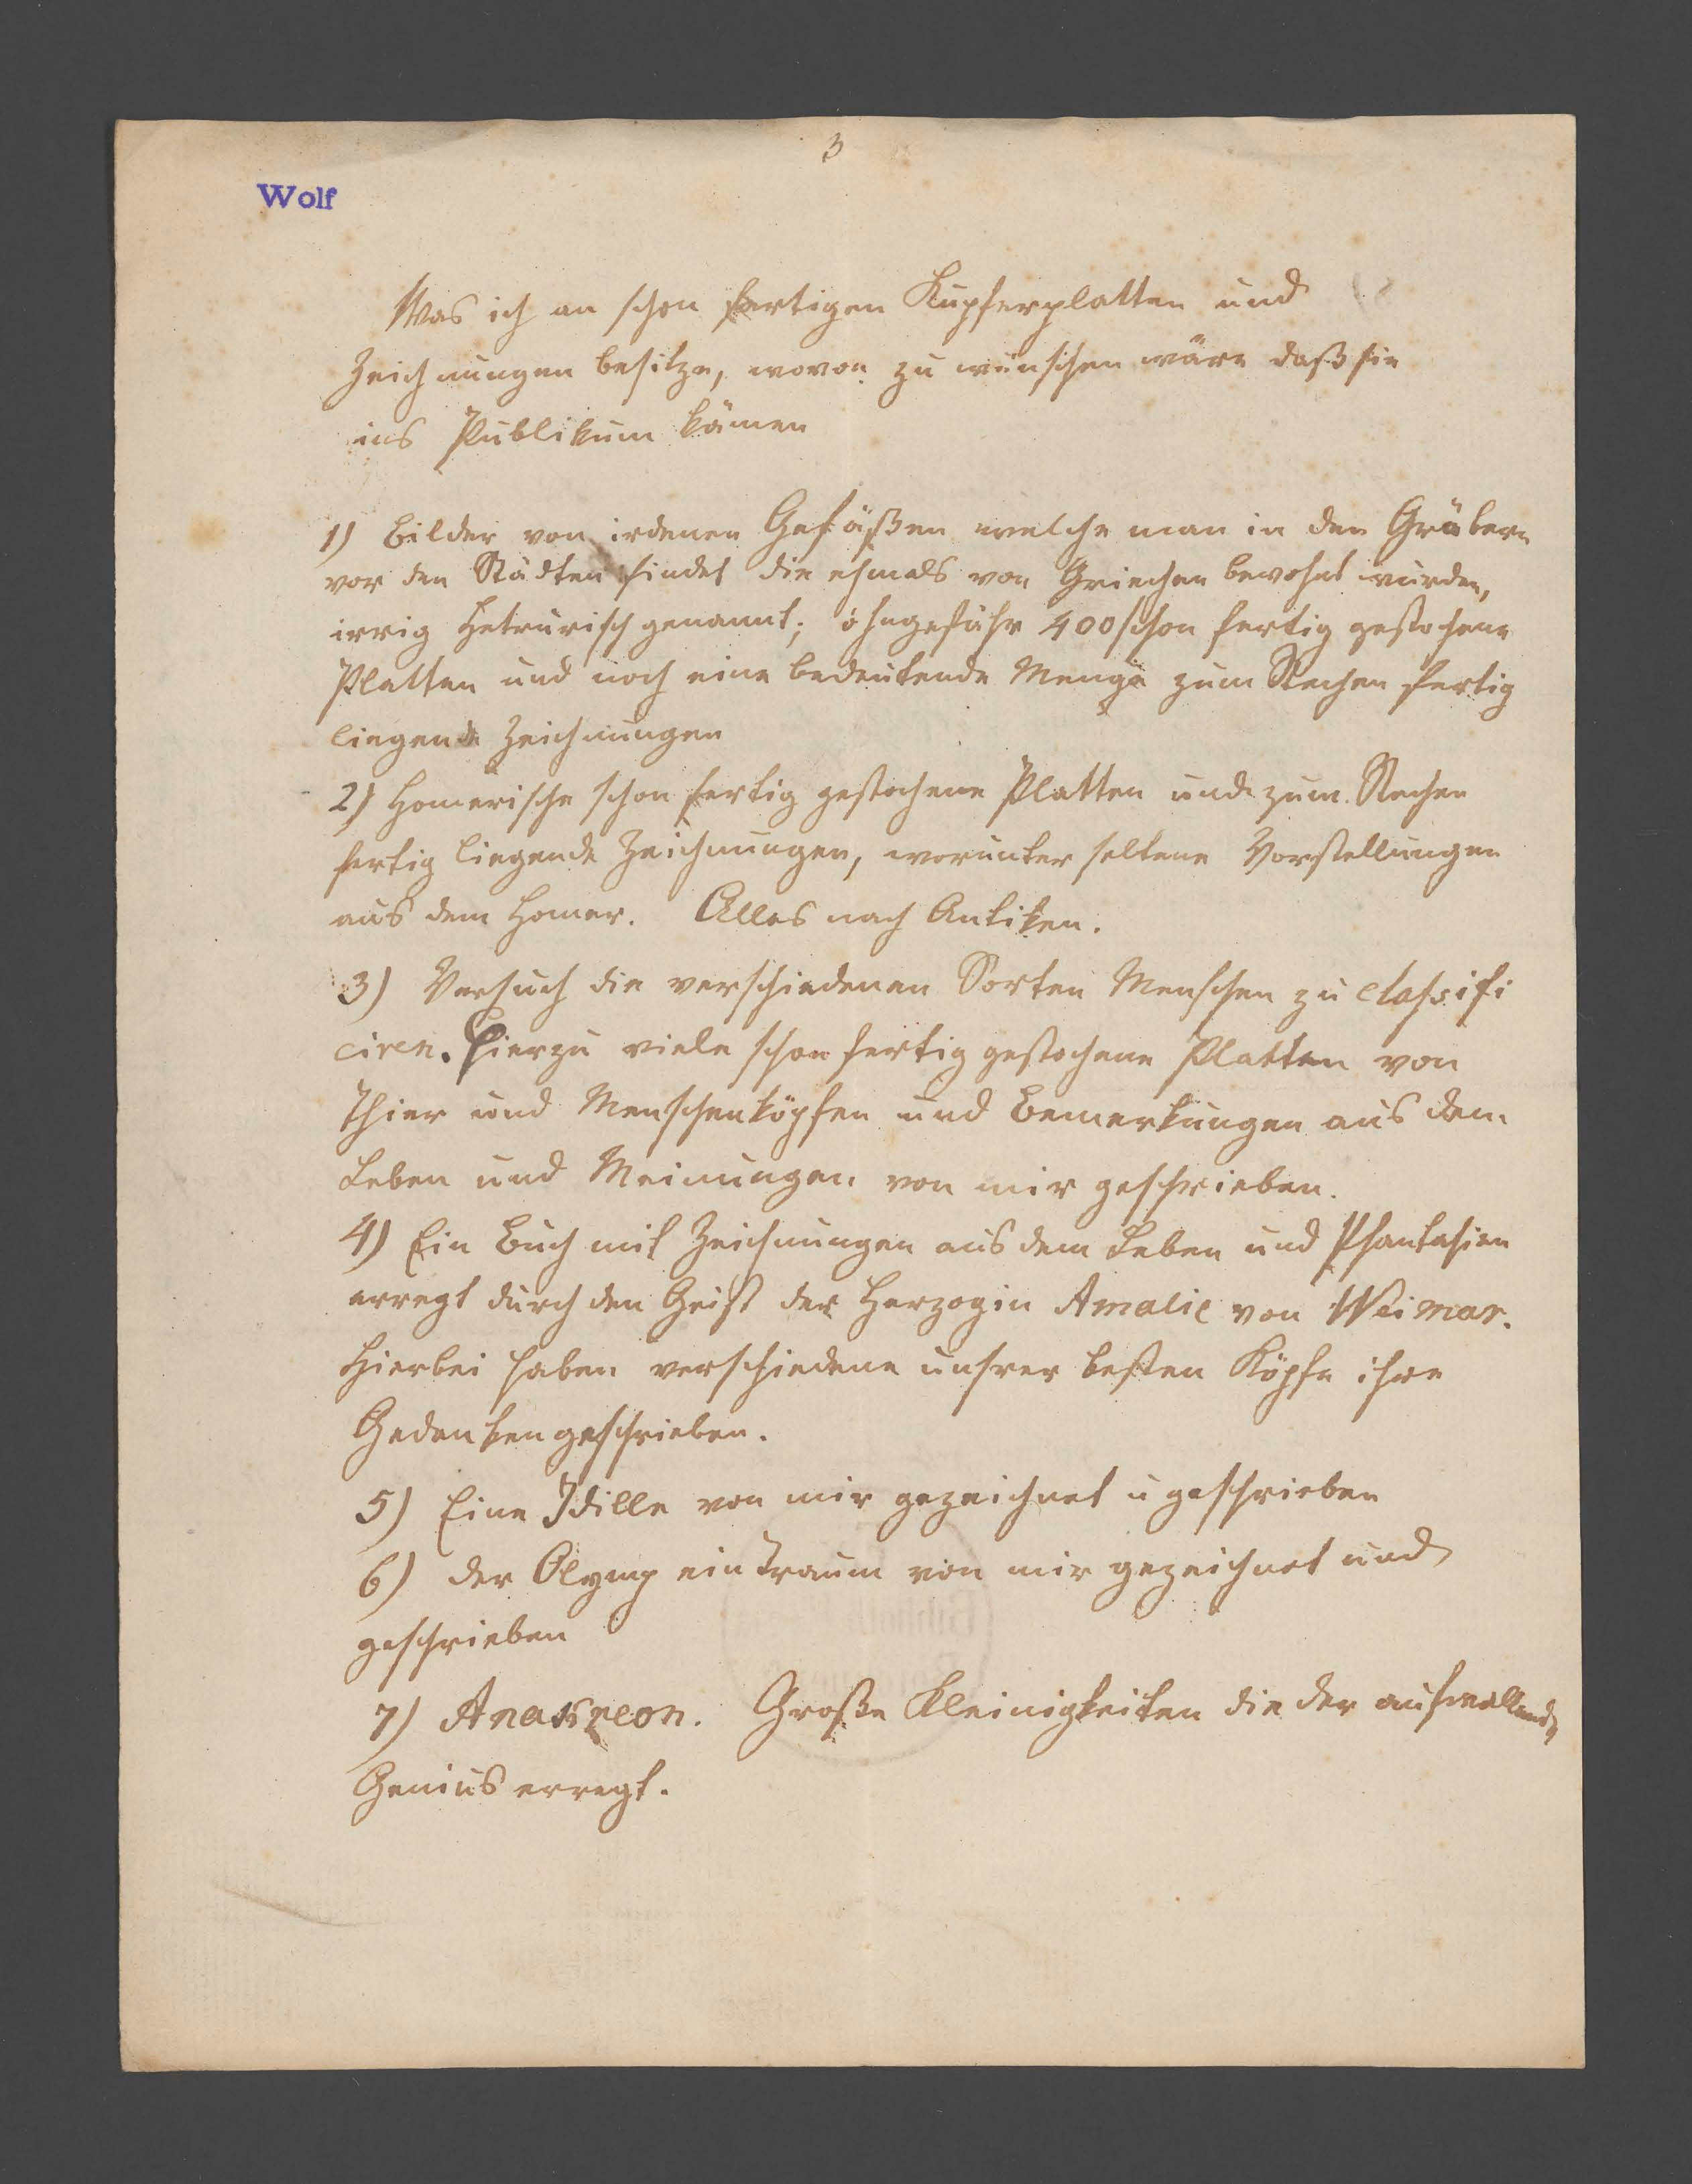 3
Wolf
Was ich an schon fertigen Kupferplatten und
Zeichnungen besitze, wovon zu wünschen wäre daß sie
ins Publikum kämen
1) Bilder von irdenen Gefäßen welche man in den Gräbern
vor den Städten findet die ehmals von Griechen bewohnt wurden,
irrig Hetrurisch genannt; ohngefähr 400 schon fertig gestochene
Platten und noch eine bedeutende Menge zum Stechen fertig
liegende Zeichnungen
2) Homerische schon fertig gestochene Platten und zum Stechen
fertig liegende Zeichnungen, worunter seltene Vorstellungen
aus dem Homer. Alles nach Antiken.
3) Versuch die verschiedenen Sorten Menschen zu classifi
ciren. Hierzu viele schon fertig gestochene Platten von
Thier und Menschenköpfen und Bemerkungen aus dem
Leben und Meinungen von mir geschrieben.
4) Ein Buch mit Zeichnungen aus dem Leben und Phantasien
erregt durch den Geist der Herzogin Amalie von Weimar.
Hierbei haben verschiedene unsrer besten Köpfe ihre
Gedanken geschrieben.
5) Eine Idille von mir gezeichnet u geschrieben
6) der Olymp ein Traum von mir gezeichnet und
geschrieben
7) Anakreon. Große Kleinigkeiten die der aufwallende
Genius erregt.